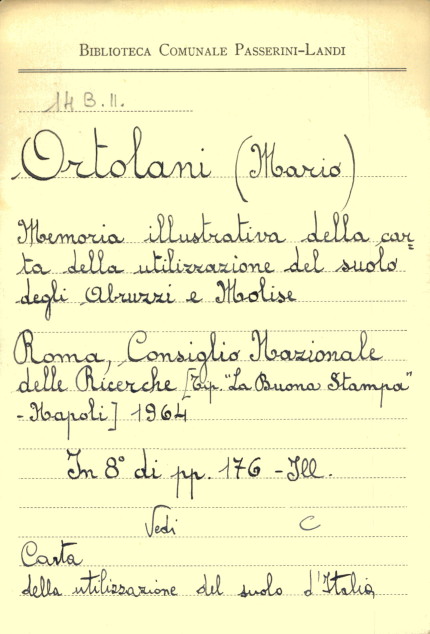 BIBLIOTECA COMUNALE PASSERINI-LANDI
14 B. II.
Ortolani (Mario)
Memoria illustrativa della car=
ta della utilizzazione del suolo
degli Abruzzi e Molise
Roma, Consiglio Nazionale
delle Ricerche [Tip. "La Buona Stampa"
- Napoli] 1964
In 8° di pp. 176 - Ill.
Vedi C
Carta
della utilizzazione del suolo d'Italia